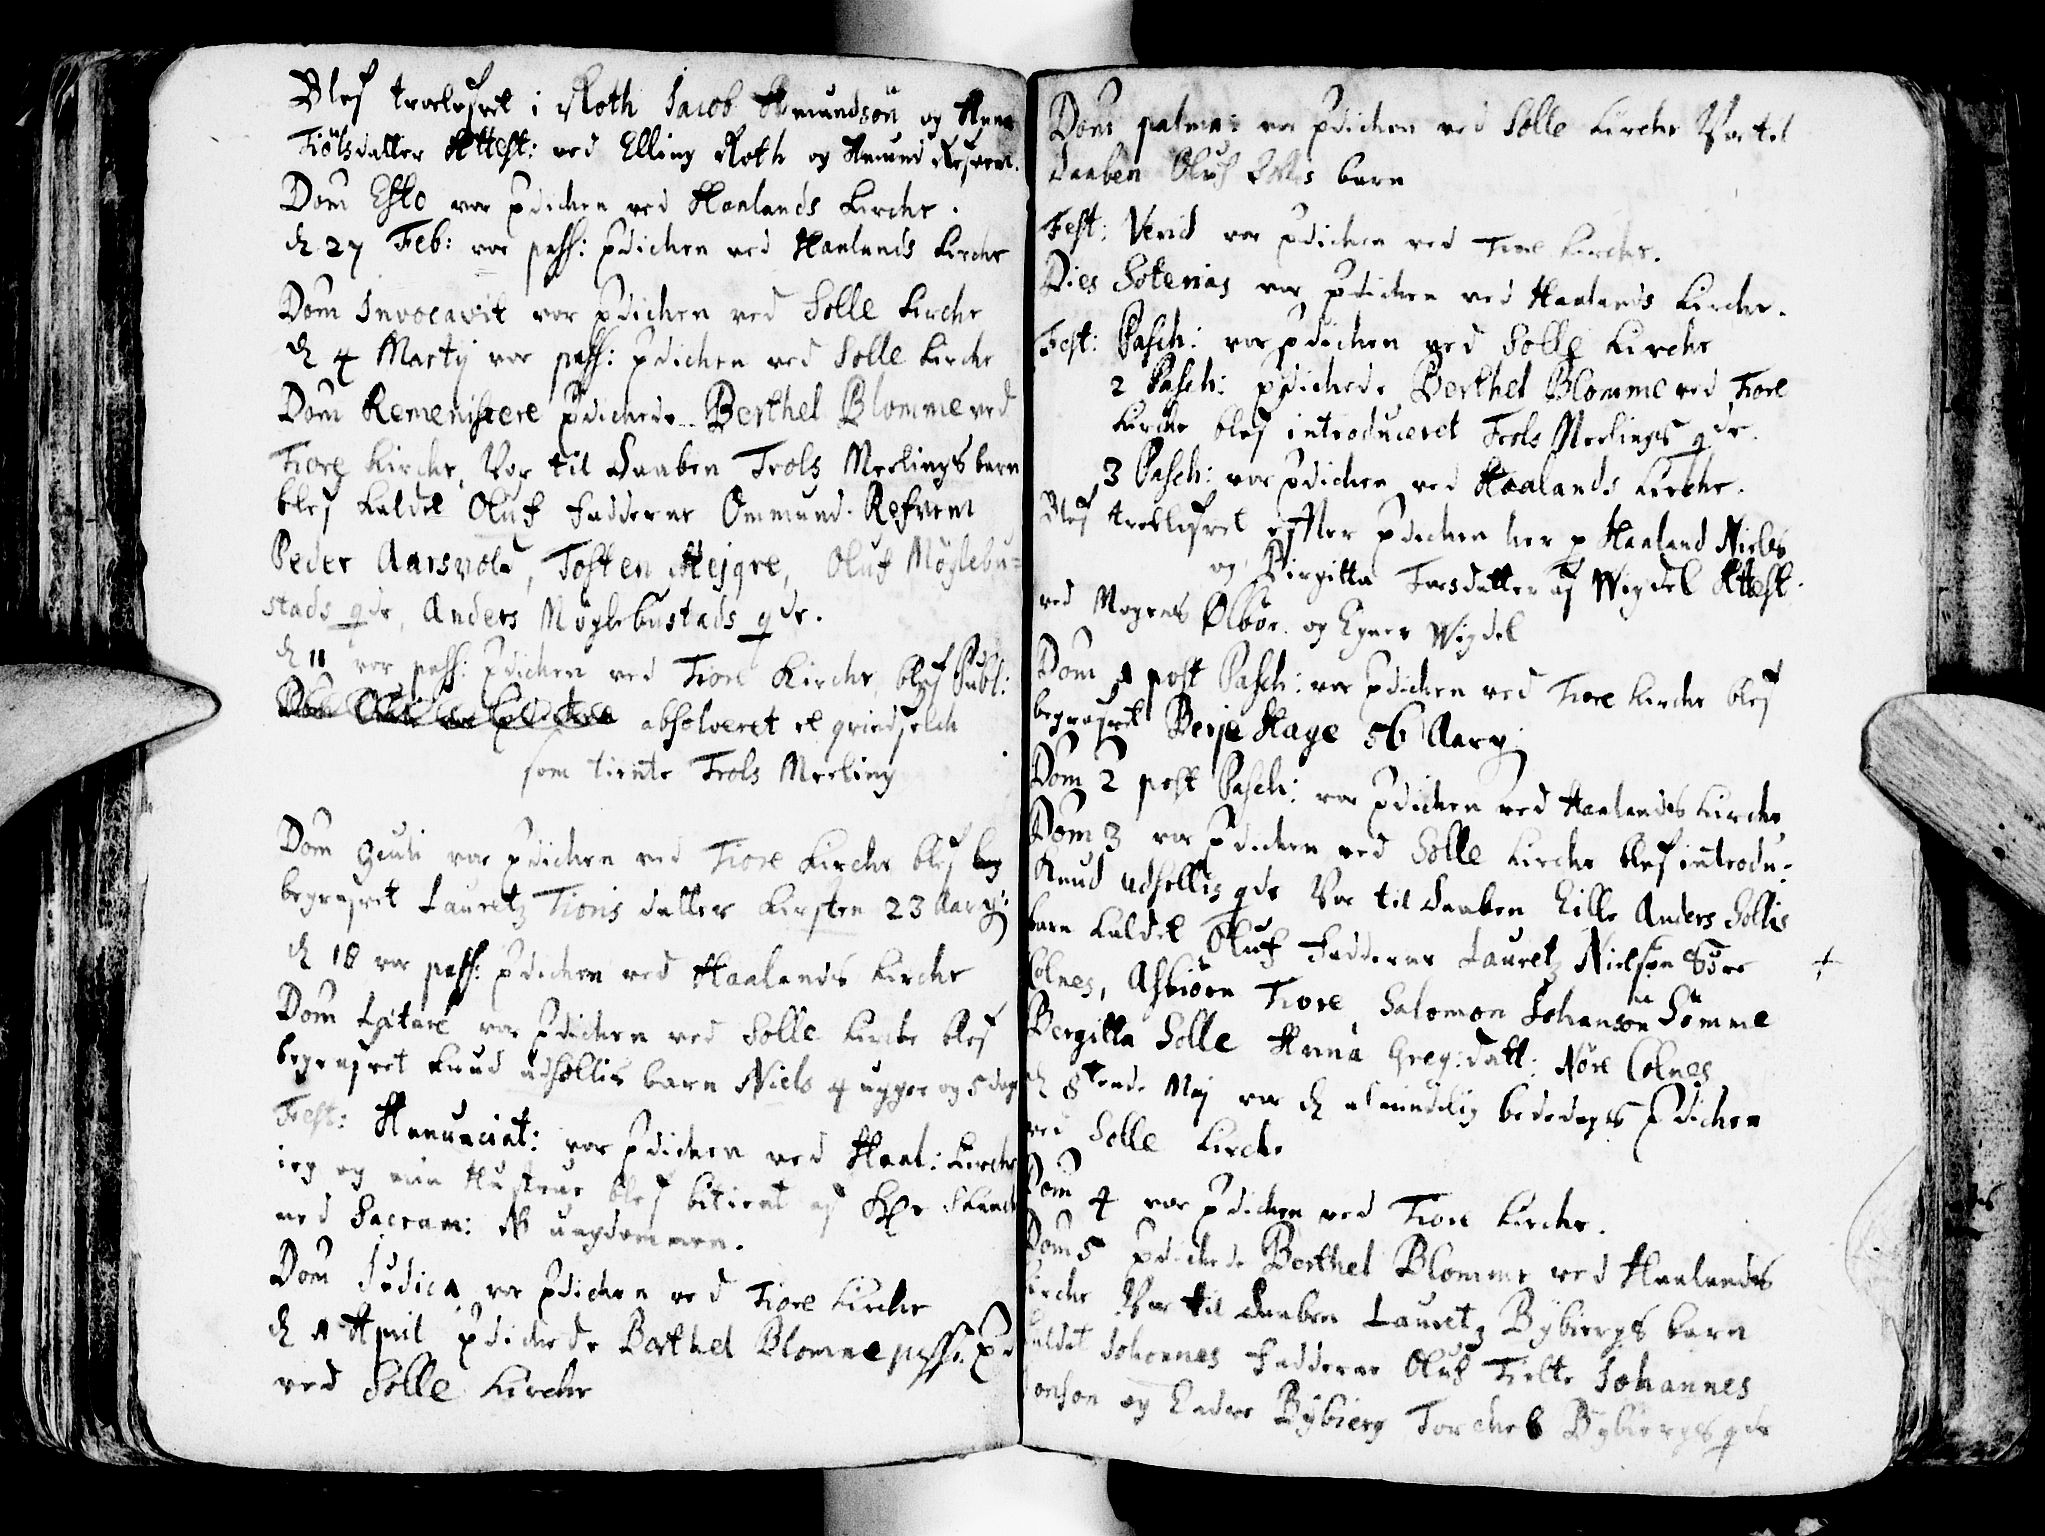 Blef trolofvet i Roth Jacob Amundsøn og Anna
Tiølsdatter Attest: ved Elling Roth og Amund Refvem.
Dom Esto var prdichen ved Haalands Kirche.
d 27 Feb: var pass: prdichen ved Haalands Kirche
Dom Invocavit var prdichen ved Solle Kirche
d 4 Martij var pass: prdichen ved Solle Kirche
Dom Remeniscere prdichede Berthel Blomme ved
Tiore Kirche, Var til Daaben Trols Meelings barn
blef kaldet Oluf Fadderne Ommund Refvem
Peder Aarsvold, Tosten Mejgre, Oluf Møglebu-
stads qde, Anders Møglebustads qde.
d 11 var pass: prdichen ved Tiore Kirche, blef Publ:
absolveret et qvindfolch
som tiente Trols Meeling
Dom Oculi var prdichen ved Tiore Kirche blef
begrafvet Lauretz Tioris datter Kirsten 23 Aar
d 18 var pass: prdichen ved Haalands Kirche
Dom Lætare var prdichen ved Solle Kirche blef
begrafvet Knud udsollis barn Niels 4 ugger og 5 dage
Fest: Annunciat: var prdichen ved Haal: Kirche
ieg og min Hustrue blef betient af
med Sacram: NB ungdommen.
Dom Judica var prdichen ved Tiore Kirche
d 1 April prdichede Berthel Blomme pass: prd
ved Solle Kirche
Dom palmar: var prdichen ved Solle Kirche Var til
Daaben Oluf Sollis barn
Fest: Virid var prdichen ved Tiore Kirche.
Dies Soterias var prdichen ved Haalands Kirche.
Fest: Pasch: var prdichen ved Solle Kirche
2 Pasch: prdichede Berthel Blomme ved Tiore
Kirche blef introduceret Trols Meelings qde.
3 Pasch: var prdichen ved Haalands Kirche.
Blef trolofvet effter prdichen her p Haaland Niels
og Birgitta Torsdatter af Wigdel Attest:
ved Mogens Ølbør og Egner Wigdel
Dom 1 post Pasch: var prdichen ved Tiore Kirche blef
begrafvet Berje Hage 56 Aar
Dom 2 post Pasch: var prdichen ved Haalands Kirche
Dom 3 var prdichen ved Solle Kirche blef introdu:
Knud udsollis qde Var til Daaben Lille Anders Sollis
barn kaldet Oluf Fadderne Lauretz Nielsøn Søre
Colnes, Asbiørn Tiore Salomon Johansøn Sømme
Bergitta Solle Anna Greg: datt: Nøre Colnes
d 8tende Maj var d almindelig bededags prdichen
ved Solle Kirche
Dom 4 var prdichen ved Tiore Kirche.
Dom 5 prdichede Berthel Blomme ved Haalands
Kirche Var til Daaben Lauretz Bybiergs barn
kaldet Johannes Fadderne Oluf Tielte Johannes
og Endre Bybierg Torchel Bybiergs qde